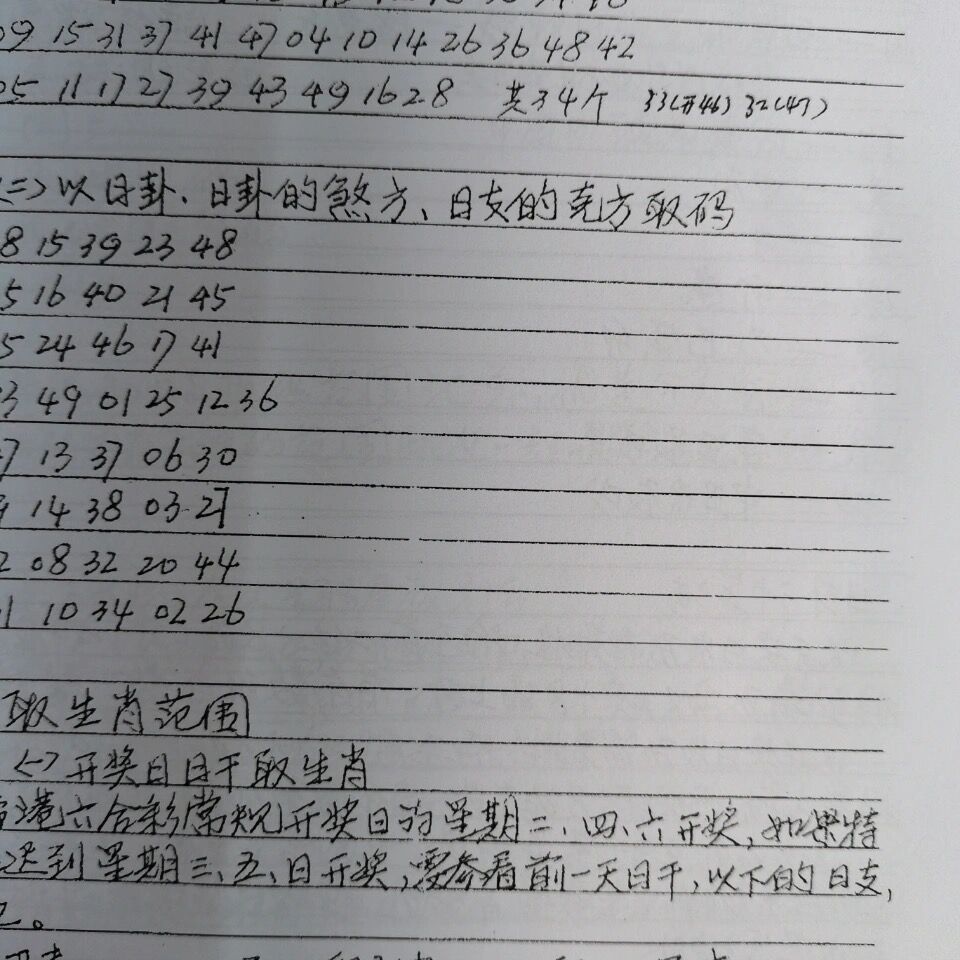 09 15 31 37 41 47 04 10 14 26 36 48 42
05 11 17 27 39 43 49 16 28 共34个 33(开46) 32(47)
(二)以日卦、日卦的煞方、日支的克方取码
8 15 39 23 48
5 16 40 21 45
5 24 46 17 41
3 49 01 25 12 36
7 13 37 06 30
14 38 03 27
2 08 32 20 44
1 10 34 02 26
取生肖范围
(一)开奖日日干取生肖
港六合彩常规开奖日为星期二、四、六开奖,如果特
迟到星期三、五、日开奖,需参看前一天日干,以下的日支,
。